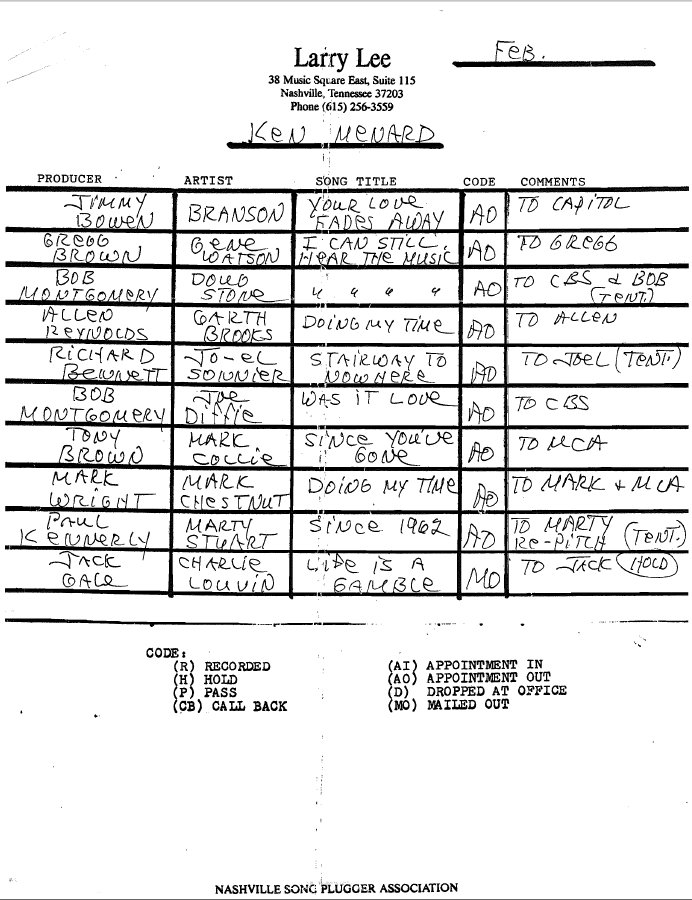 Larry Lee
FEB.
38 Music Square East, Suite 115
Nashville, Tennessee 37203
Phone (615) 256-3559
KEN MENARD
PRODUCER ARTIST SONG TITLE CODE COMMENTS
JIMMY BOWEN BRANSON YOUR LOVE FADES AWAY AO TO CAPITOL
GREGG BROWN GENE WATSON I CAN STILL HEAR THE MUSIC AO TO GREGG
BOB MONTGOMERY DOUG STONE " " " " AO TO CBS & BOB (TENT.)
ALLEN REYNOLDS GARTH BROOKS DOING MY TIME AO TO ALLEN
RICHARD BENNETT JO-EL SONNIER STAIRWAY TO NOWHERE AO TO JOEL (TENT.)
BOB MONTGOMERY JOE DIFFIE WAS IT LOVE AO TO CBS
TONY BROWN MARK COLLIE SINCE YOU'VE GONE AO TO MCA
MARK WRIGHT MARK CHESTNUT DOING MY TIME AO TO MARK + MCA
PAUL KENNERLY MARTY STUART SINCE 1962 AO TO MARTY RE-PITCH (TENT.)
JACK GALE CHARLIE LOUVIN LIFE IS A GAMBLE MO TO JACK HOLD
CODE:
(R) RECORDED (AI) APPOINTMENT IN
(H) HOLD (AO) APPOINTMENT OUT
(P) PASS (D) DROPPED AT OFFICE
(CB) CALL BACK (MO) MAILED OUT
NASHVILLE SONG PLUGGER ASSOCIATION